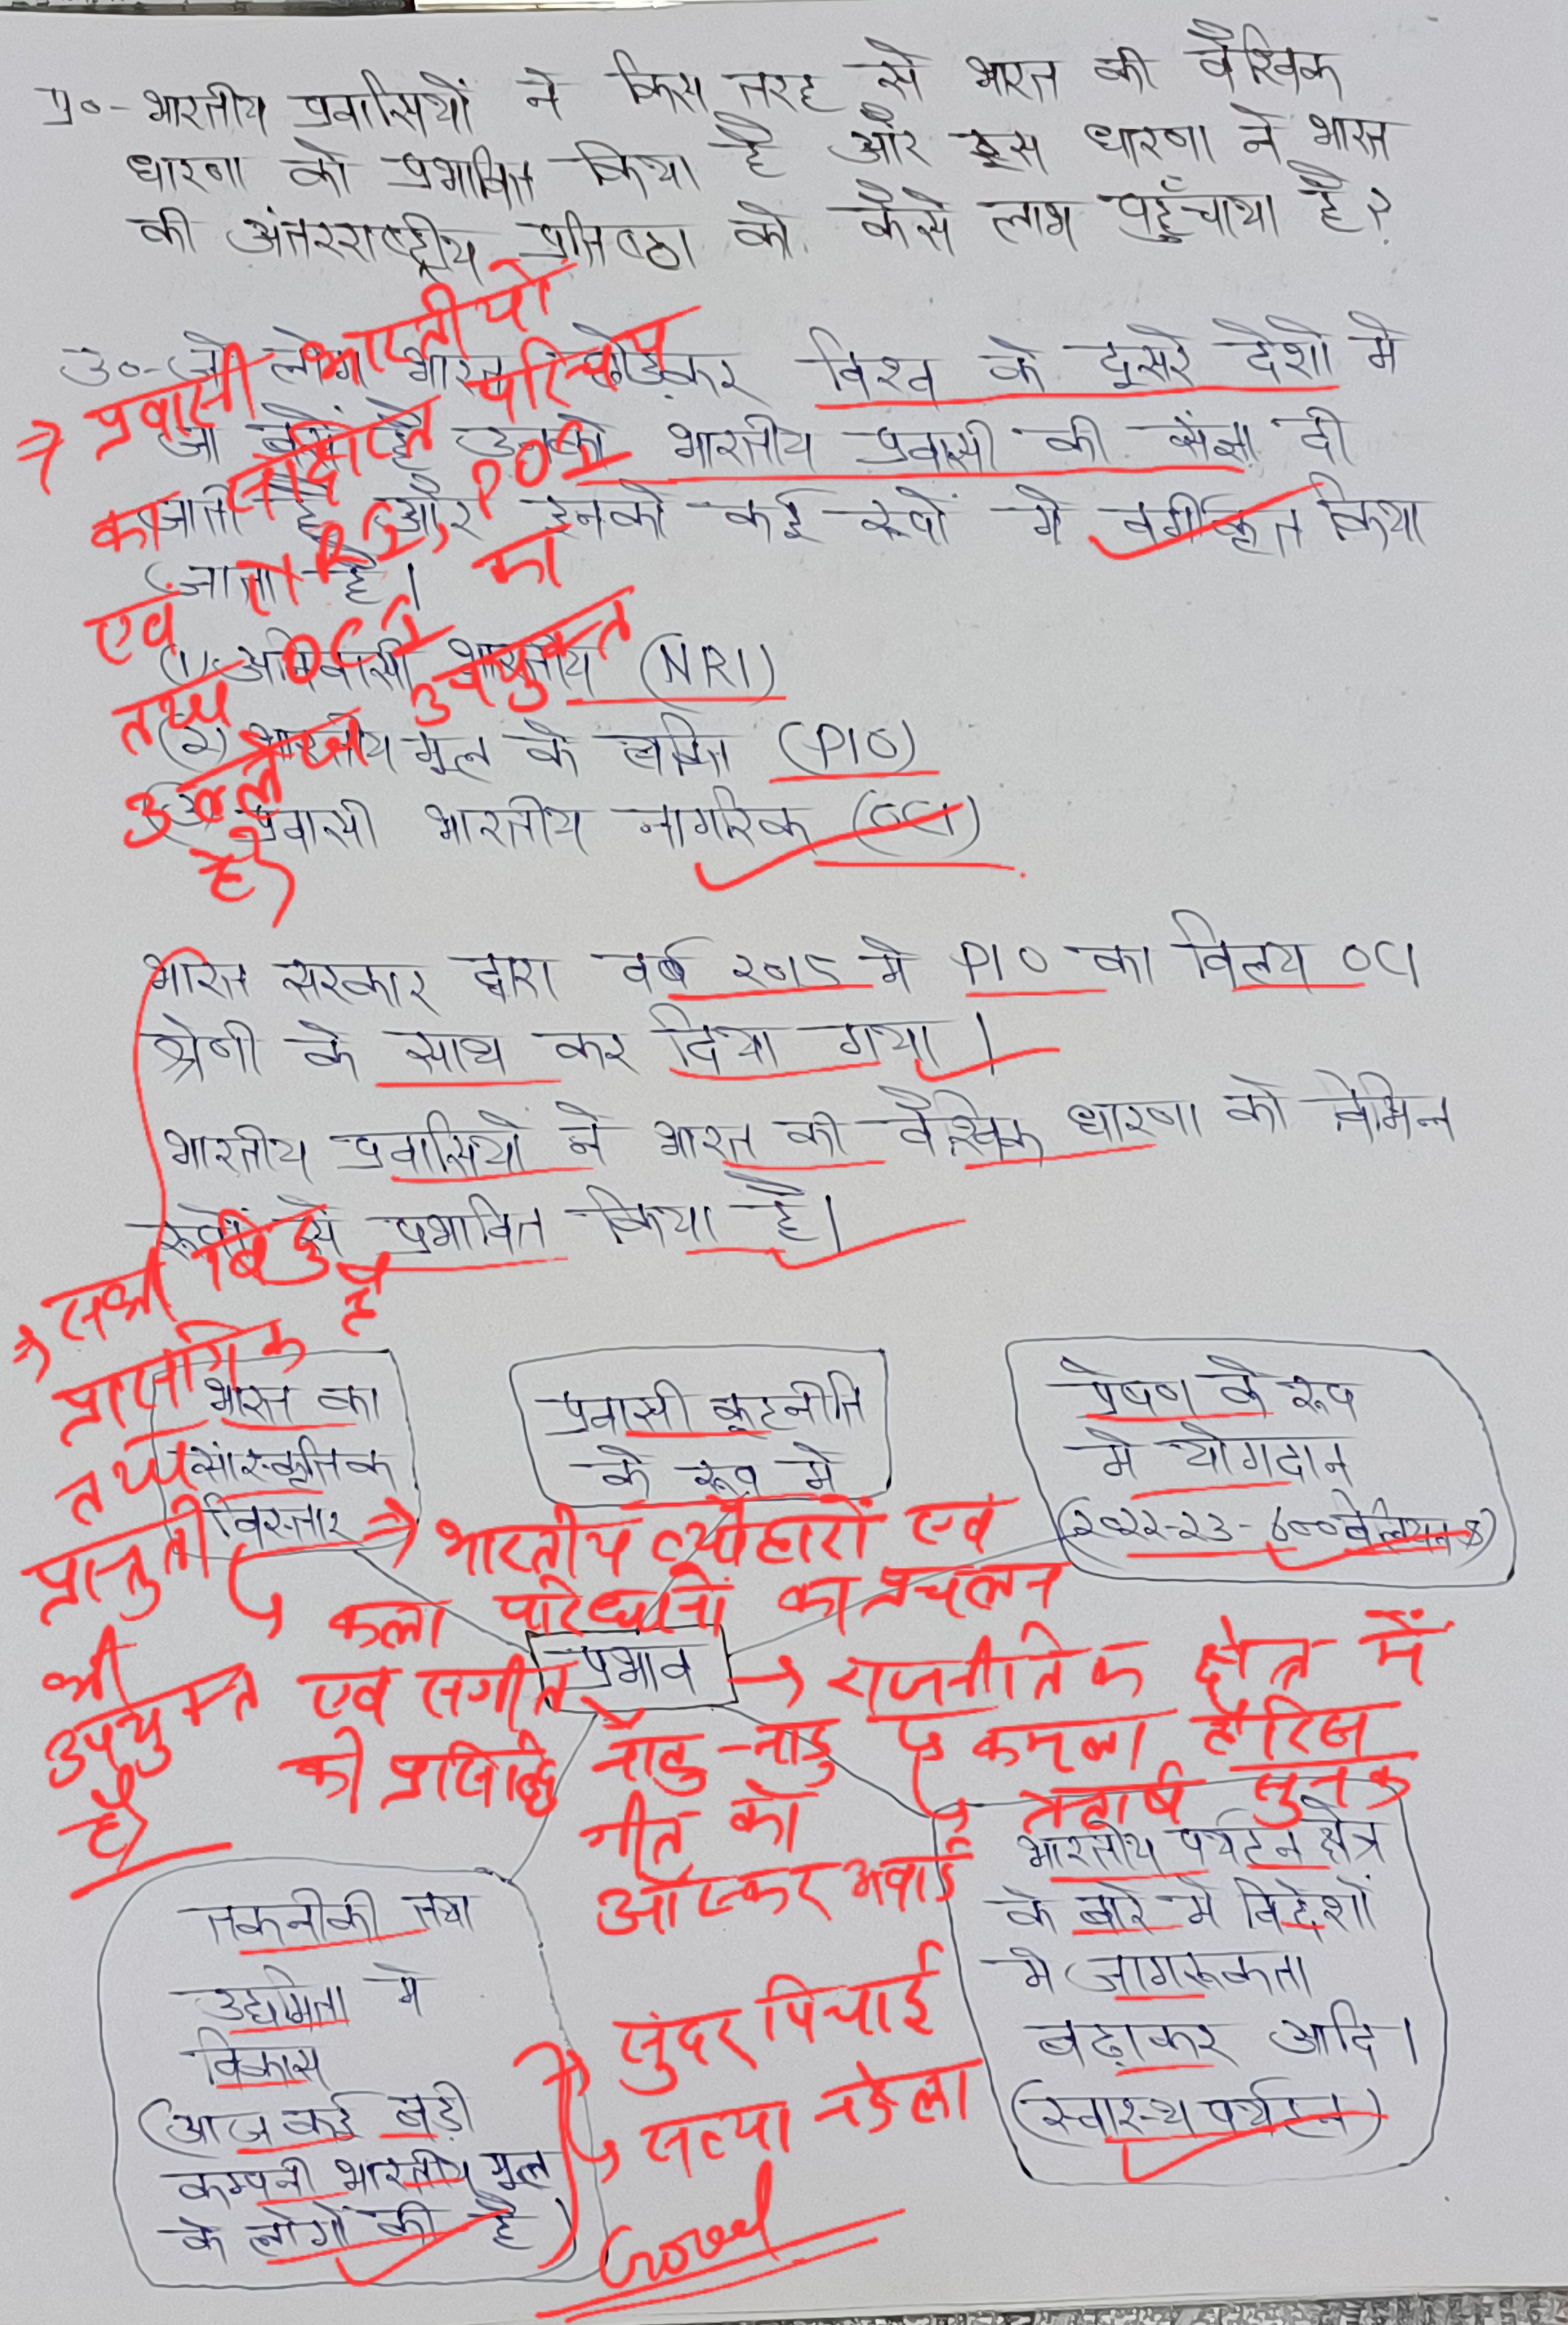 प्र०- भारतीय प्रवासियों ने किस तरह से भारत की वैश्विक
धारणा को प्रभावित किया है और इस धारणा ने भारत
की अंतरराष्ट्रीय प्रतिष्ठा को कैसे लाभ पहुँचाया है?
उ०- जो लोग भारत छोड़कर विश्व के दूसरे देशों में
जा बसे है उनको भारतीय प्रवासी की संज्ञा दी
जाती है और इनको कई रूपों में वर्गीकृत किया
जाता है।
⇒ प्रवासी भारतीयों
का संक्षिप्त परिचय
एवं NRI, POI
तथा OCI का
उल्लेख उपयुक्त
है)
(1) अनिवासी भारतीय (NRI)
(2) भारतीय मूल के व्यक्ति (PIO)
(3) प्रवासी भारतीय नागरिक (OCI)
भारत सरकार द्वारा वर्ष 2015 में PIO का विलय OCI
श्रेणी के साथ कर दिया गया।
भारतीय प्रवासियों ने भारत की वैश्विक धारणा को विभिन्न
रूपों से प्रभावित किया है।
⇒ सभी बिंदु
प्रासंगिक है
तथा
प्रस्तुती
भी
उपयुक्त
है)
भारत का
सांस्कृतिक
विस्तार
प्रवासी कूटनीति
के रूप में
प्रेषण के रूप
में योगदान
(2022-23 - 100 बिलियन $)
⇒ भारतीय त्यौहारों एवं
परिधानों का प्रचलन
कला
एवं संगीत
की प्रसिद्धि
नाटु-नाटु
गीत को
ऑस्कर अवार्ड
प्रभाव
→ राजनीतिक क्षेत्र में
कमला हैरिस
ऋषि सुनक
भारतीय पर्यटन क्षेत्र
के बारे में विदेशों
में जागरूकता
बढ़ाकर आदि।
(स्वास्थ्य पर्यटन)
तकनीकी तथा
उद्यमिता में
विकास
(आज कई बड़ी
कम्पनी भारतीय मूल
के लोगों की है)
सुंदर पिचाई
सत्या नडेला
Good